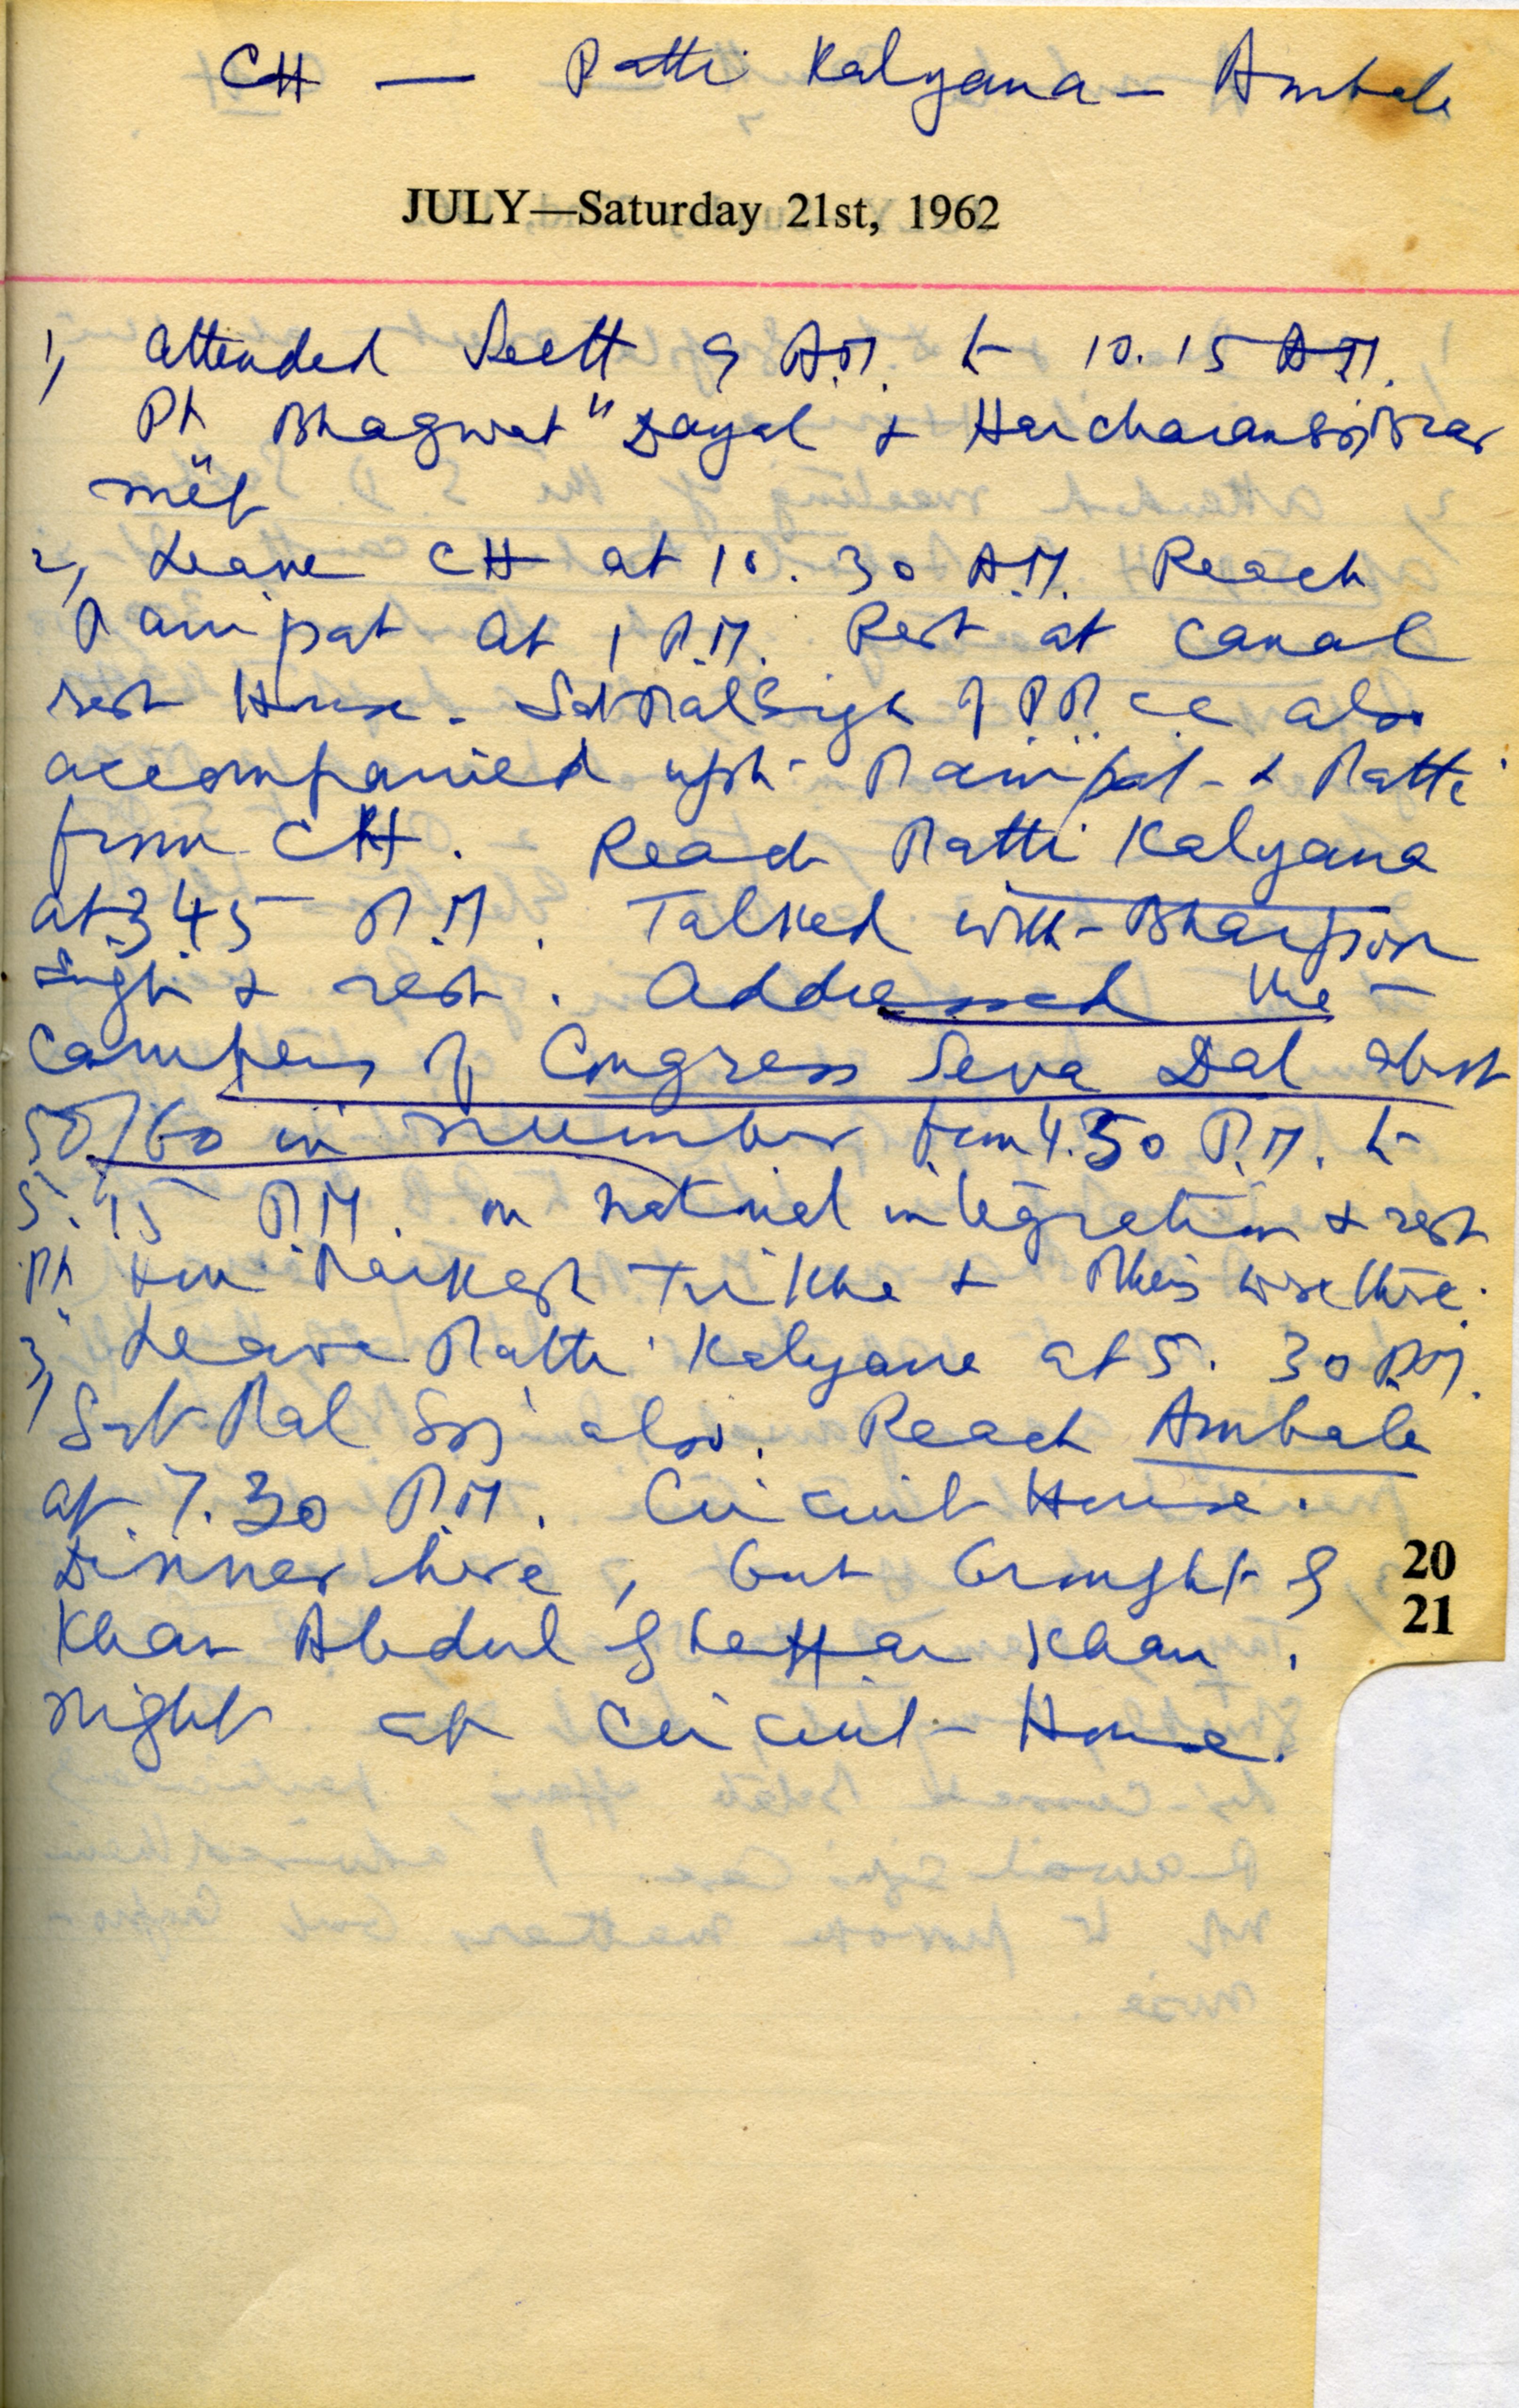 CH — Patti Kalyana — Ambala
JULY—Saturday 21st, 1962
1, Attended Sectt 9 A.M. to 10.15 A.M.
Pt Bhagwat Dayal & Harcharansg Brar
met
2, Leave CH at 10.30 A.M. Reach
Panipat at 1 P.M. Rest at Canal
rest House. Ral Singh of P.P.C.C also
accompanied upto Panipat & Patti
from CH. Reach Patti Kalyana
at 3.45 P.M. Talked with Bharpur
Singh & rest. Addressed the
Campers of Congress Seva Dal about
50/60 in number from 4.30 P.M. to
5.15 P.M. on national integration & rest
Pt Trikha & others were there.
3, Leave Patti Kalyana at 5.30 P.M.
Ral Sg also. Reach Ambala
at 7.30 P.M. Circuit House.
Dinner here, but brought of
Khan Abdul Ghaffar Khan.
Night at Circuit House.
20
21